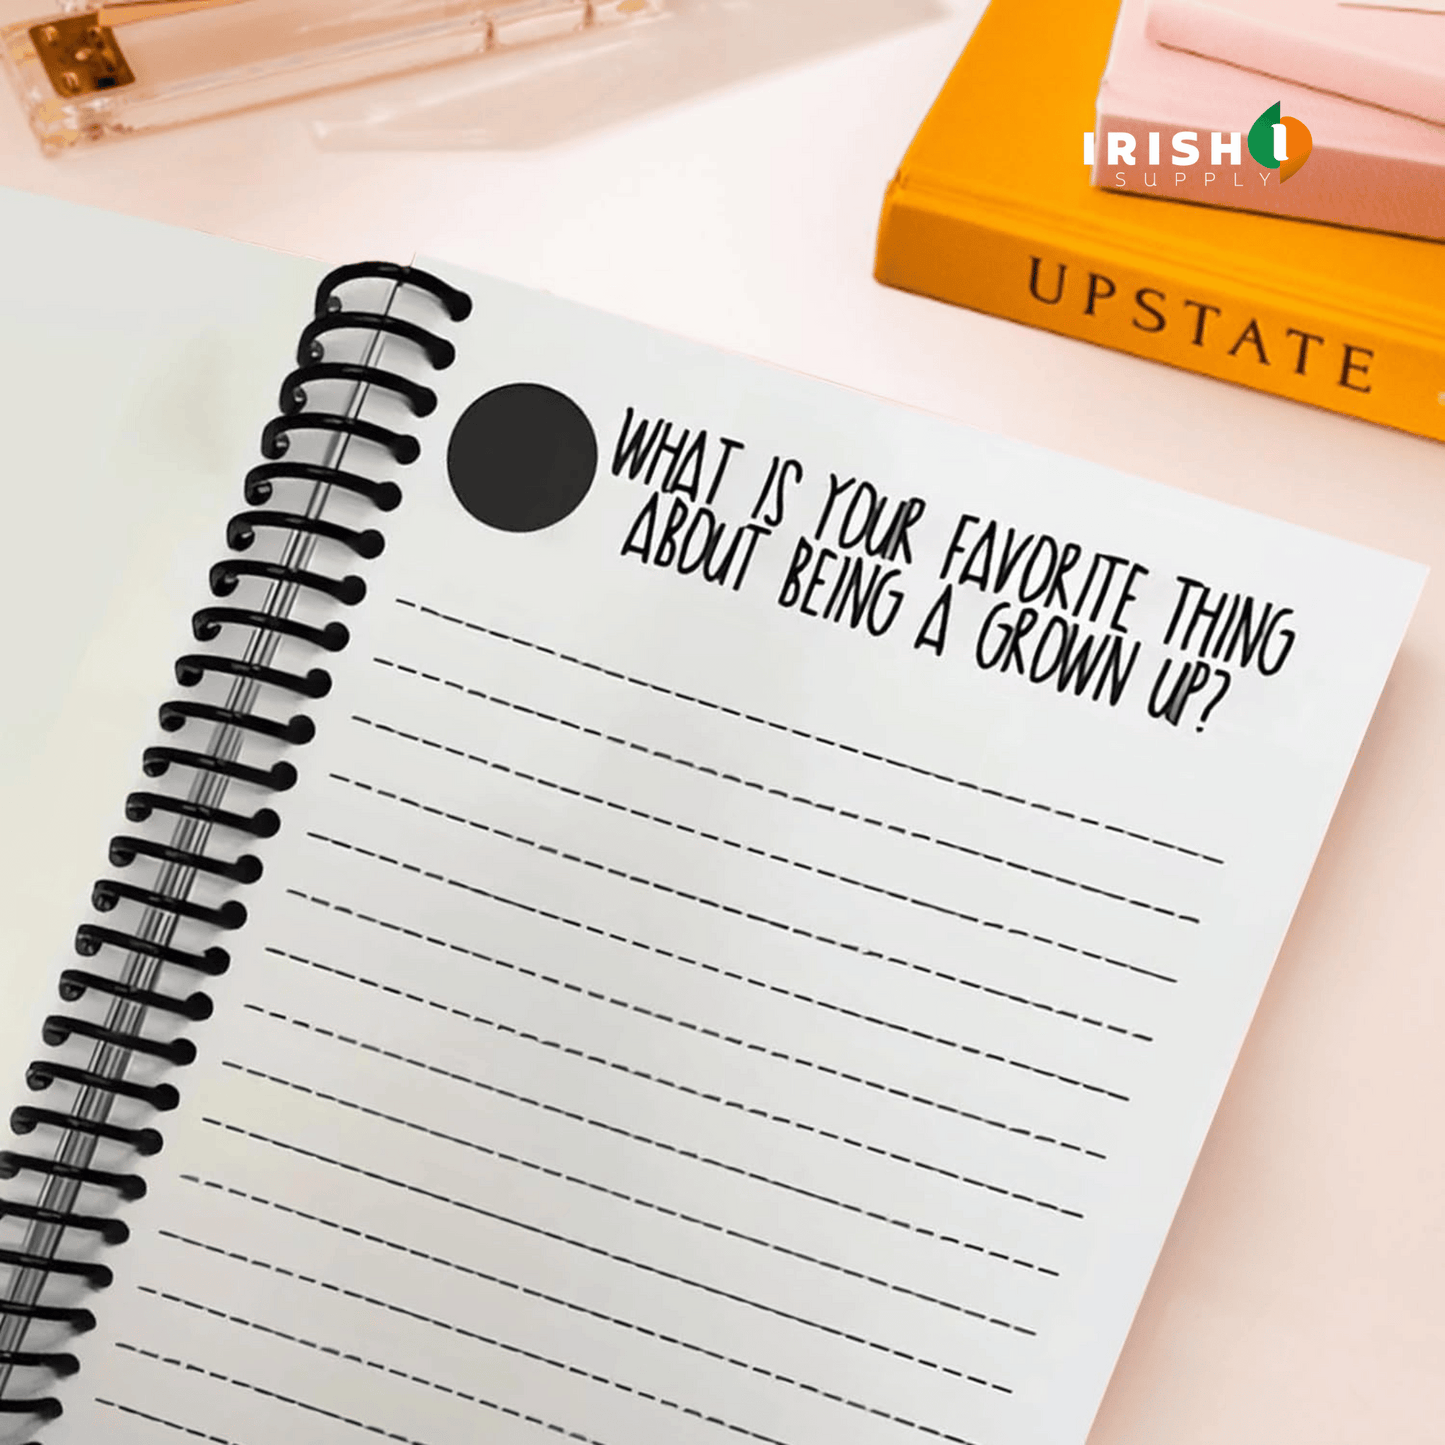 IRISH
SUPPLY
UPSTATE
WHAT IS YOUR FAVORITE THING
ABOUT BEING A GROWN UP?